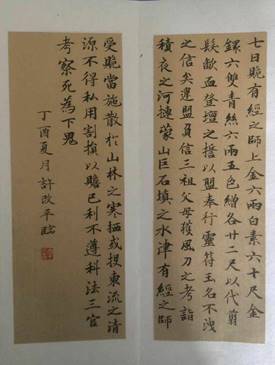 七日貺有經之師上金六兩白素六十尺金
鐶六雙青絲六兩五色繒各廿二尺以代翦
髮歃血登壇之誓以盟奉行靈符玉名不洩
之信矣違盟負信三祖父母獲風刀之考詣
積夜之河摙蒙山巨石填之水津有經之師
受貺當施散於山林之寒栖或投東流之清
源不得私用割損以贍己利不遵科法三官
考察死為下鬼
丁酉夏月許改平臨